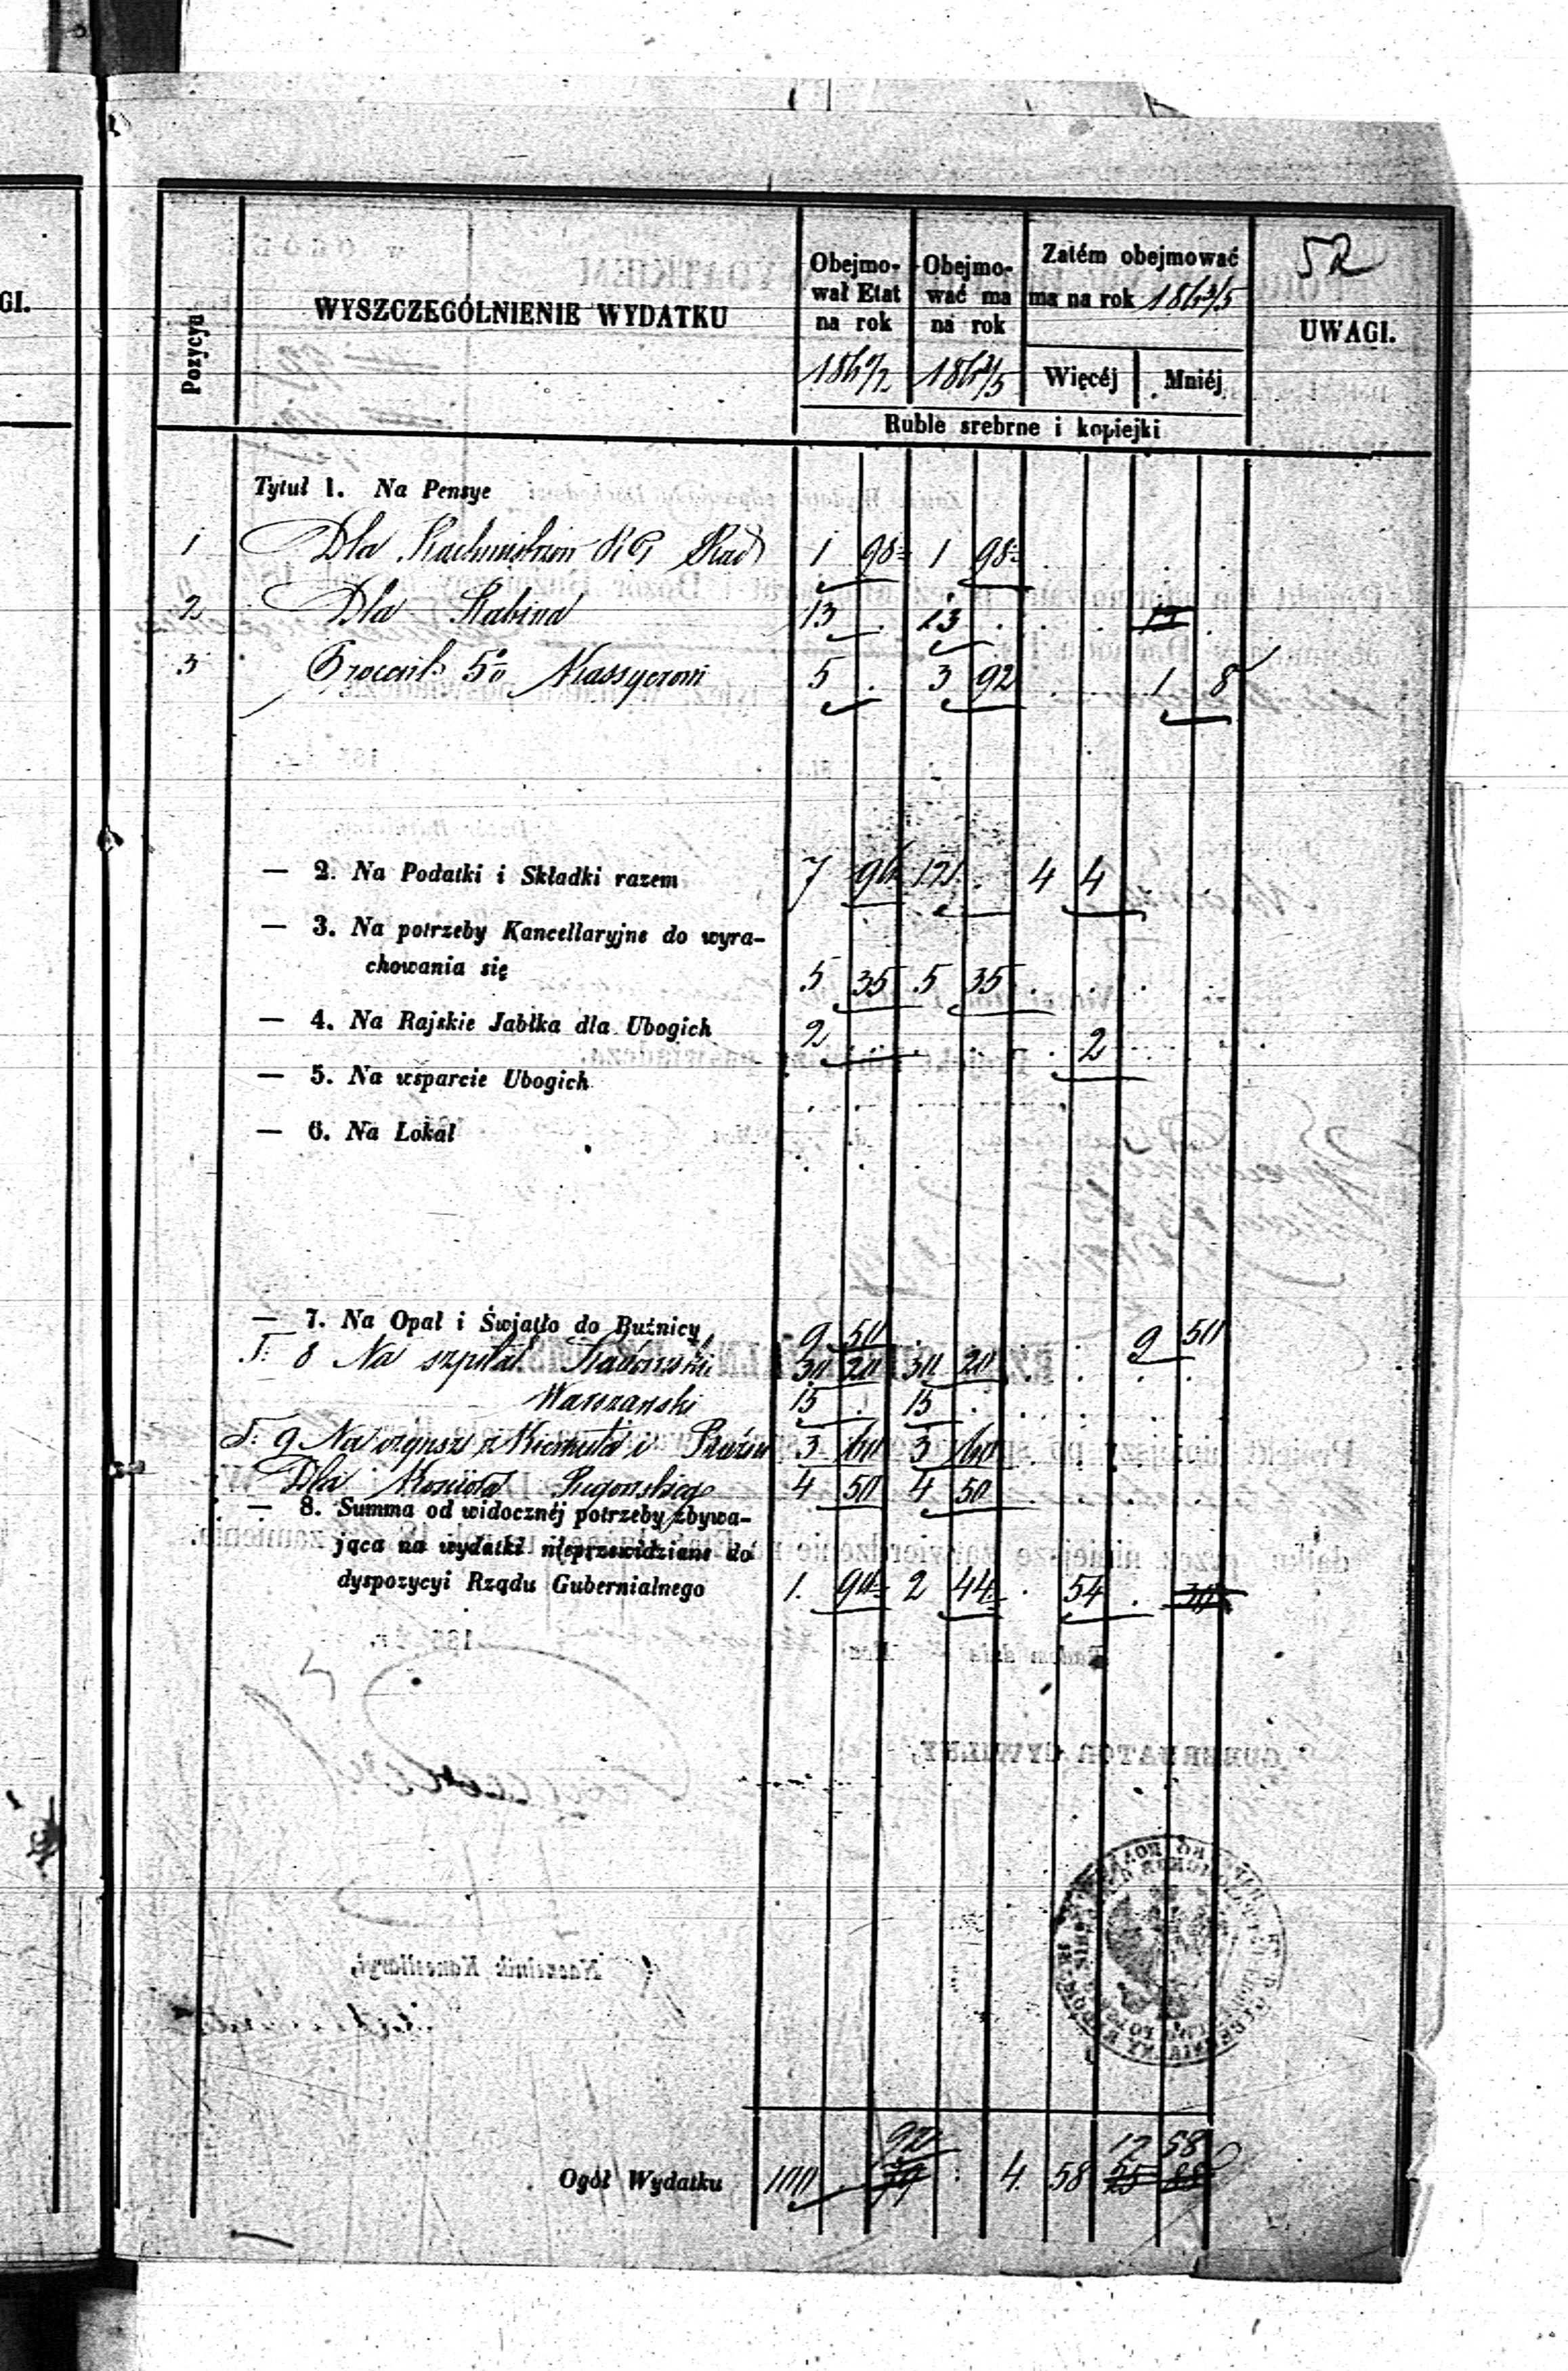 GI.
52
Pozycya
WYSZCZEGÓLNIENIE WYDATKU
Obejmo-
wał Etat
na rok
Obejmo-
wać ma
na rok
1863/5
Zatém obejmować
ma na rok 1863/5
Więcéj Mniéj
UWAGI.
Ruble srebrne i kopiejki
Tytuł 1. Na Pensye
1 Dla RG Rad 1 98 1 98
2 Dla Rabina 13 . 13 .
3 Procent 5% Kassyerowi 5 . 3 92 1 8
— 2. Na Podatki i Składki razem 7 96 12 . 4 4
— 3. Na potrzeby Kancellaryjne do wyra-
chowania się 5 35 5 35
— 4. Na Rajskie Jabłka dla Ubogich 2 2
— 5. Na wsparcie Ubogich
— 6. Na Lokal
— 7. Na Opał i Światło do Buźnicy 9 50 9 50
T. 8 Na szpital Radomski 30 20 30 20
Warszawski 15 . 15 .
T. 9 Na czynsz z i 3 60 3 60
Dla Kościoła 4 50 4 50
— 8. Summa od widocznéj potrzeby zbywa-
jąca na wydatki nieprzewidziane do
dyspozycyi Rządu Gubernialnego 1. 90 2 44 54
92 12 58
Ogół Wydatku 100 4 58